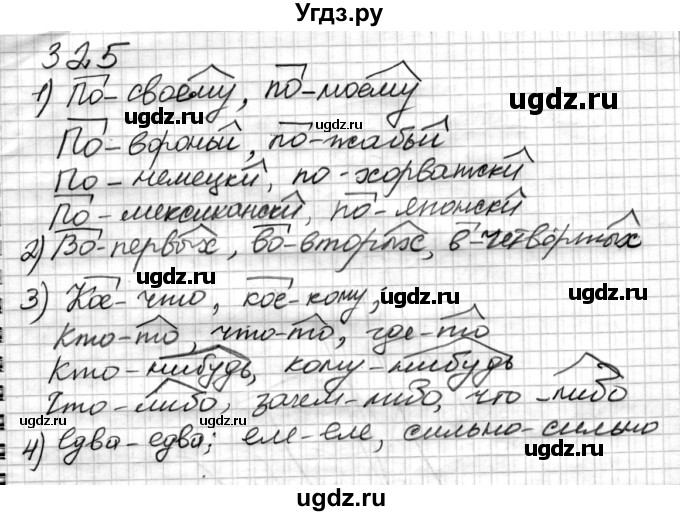 Угдз.ру
325
1) По-своему, по-моему
По-вороньи, по-жабьи
По-немецки, по-хорватски
По-мексикански, по-японски
2) Во-первых, во-вторых, в-четвёртых
3) Кое-что, кое-кому,
Кто-то, что-то, где-то
Кто-нибудь, кому-нибудь
Что-либо, зачем-либо, что-либо
4) едва-едва; еле-еле, сильно-сильно
ugdz.ru
ugdz.ru
ugdz.ru
ugdz.ru
ugdz.ru
ugdz.ru
ugdz.ru
ugdz.ru
ugdz.ru
ugdz.ru
ugdz.ru